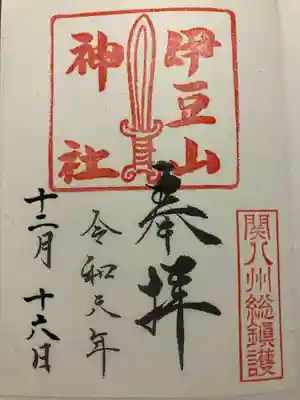 伊豆山
神社
奉拝
令和元年
十二月十六日
関八州総鎮護